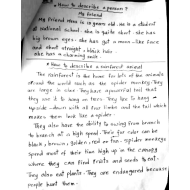 How to describe a person?
My friend
My friend Hina is 10 years old. She is a student
at national school. She is quite short she has
big brown eyes. she has got a moon-like face
and short straight black hair.
she has a charming smile.
How to describe a rainforest animal
The rainforest is the home for lots of the animals
around the world such as the spider monkey. They
are large in size. They have a powerful tail that
they use it to hang on trees. They like to hang
upside-down with all five limbs and the tail which
makes them look like a spider.
They also have the ability to swing from branch
to branch at a high speed. Their fur color can be
black, brown, golden, red or tan. Spider monkeys
spend most of their time high up in the canopy
where they can find fruits and seeds to eat.
They also eat plants. They are endangered because
people hunt them.